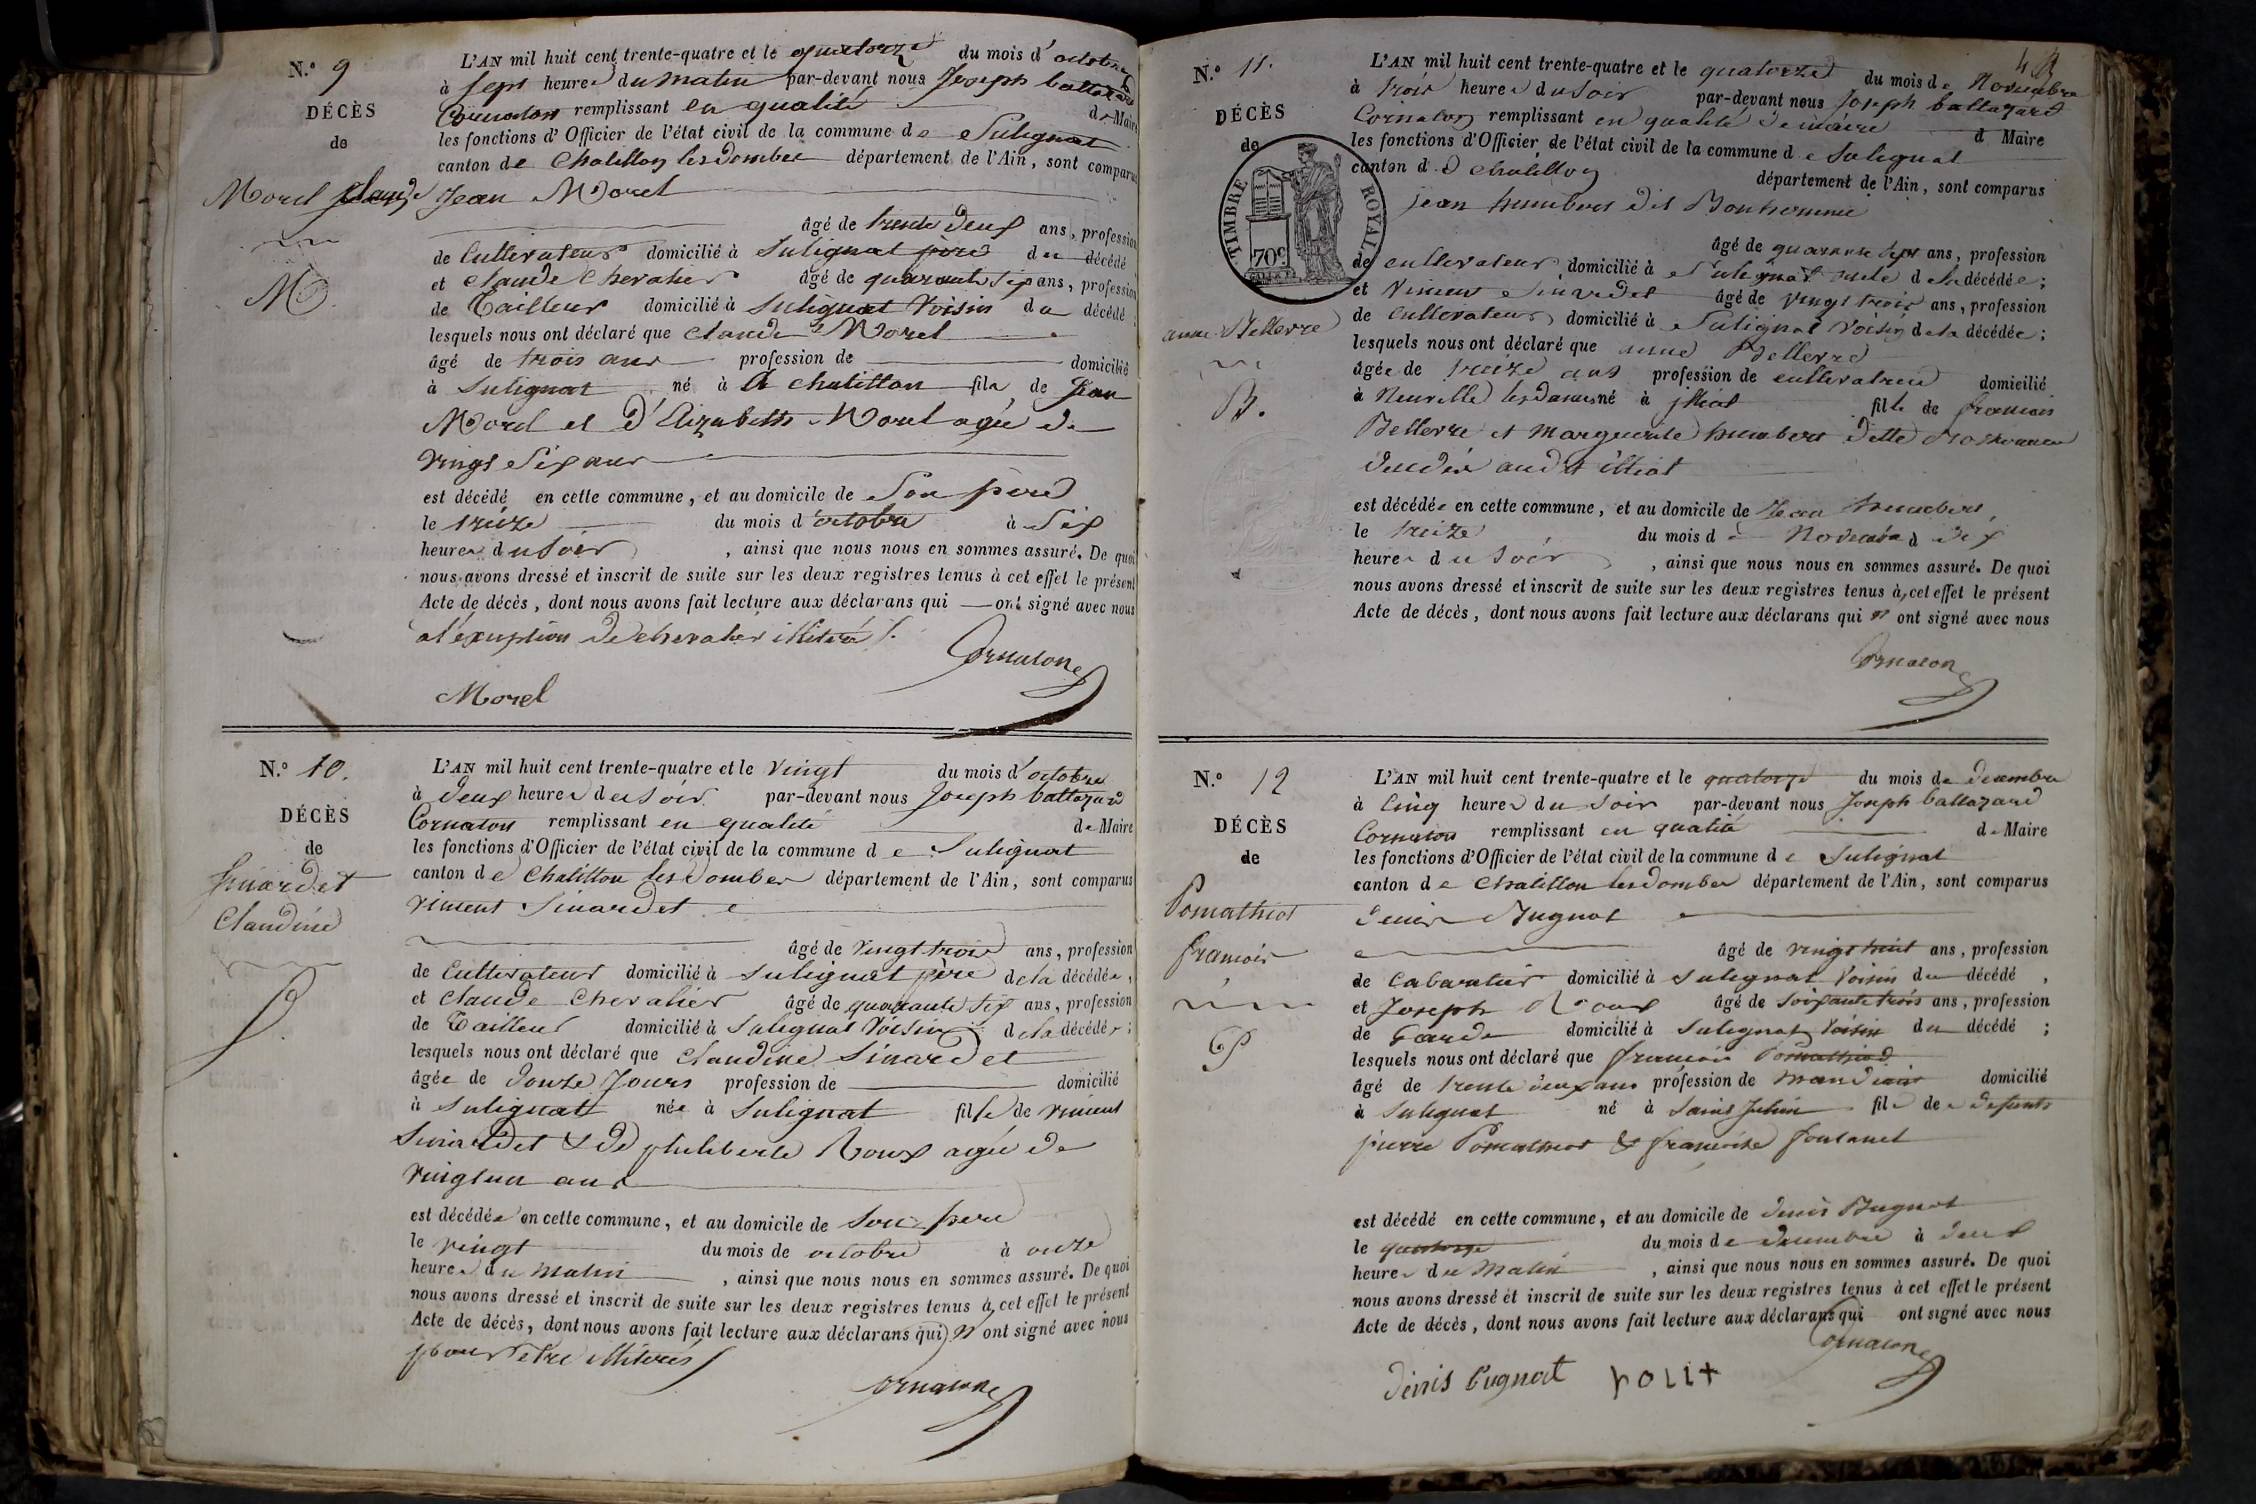 N.° 9
DÉCÈS
de
Morel Claude
M
L'AN mil huit cent trente-quatre et le quatorze du mois d'octobre
à sept heures du matin par-devant nous Joseph baltazard
Cornaton remplissant en qualité de Maire
les fonctions d'Officier de l'état civil de la commune de Sulignat
canton de Chatillon les dombes département de l'Ain, sont comparus
Jean Morel
âgé de trente deux ans, profession
de Cultivateur domicilié à Sulignat père du décédé
et Claude Chevalier âgé de quarante six ans, profession
de Tailleur domicilié à Sulignat Voisin du décédé
lesquels nous ont déclaré que Claude Morel
âgé de trois ans profession de domicilié
à Sulignat né à A chatillon fils de Jean
Morel et d'Elizabeth Morel agée de
vingt six ans
est décédé en cette commune, et au domicile de Son père
le treize du mois d'octobre à Six
heures du soir, ainsi que nous nous en sommes assuré. De quoi
nous avons dressé et inscrit de suite sur les deux registres tenus à cet effet le présent
Acte de décès, dont nous avons fait lecture aux déclarans qui ont signé avec nous
a l'exception de chevalier illiteré
Cornaton
Morel
N.° 10.
DÉCÈS
de
Sinardet
Claudine
L'AN mil huit cent trente-quatre et le vingt du mois d'octobre
à deux heures du soir par-devant nous Joseph baltazard
Cornaton remplissant en qualité de Maire
les fonctions d'Officier de l'état civil de la commune de Sulignat
canton de Chatillon les dombes département de l'Ain, sont comparus
vincent Sinardet
âgé de vingt trois ans, profession
de Cultivateur domicilié à Sulignat père de la décédée,
et Claude Chevalier âgé de quarante six ans, profession
de Tailleur domicilié à Sulignat Voisin de la décédée;
lesquels nous ont déclaré que Claudine Sinardet
âgée de douze Jours profession de domicilié
à Sulignat née à Sulignat fille de vincent
Sinardet & de philiberte Roux agée de
vingt un ans
est décédée en cette commune, et au domicile de Son père
le vingt du mois de octobre à onze
heures du Matin, ainsi que nous nous en sommes assuré. De quoi
nous avons dressé et inscrit de suite sur les deux registres tenus à cet effet le présent
Acte de décès, dont nous avons fait lecture aux déclarans qui n'ont signé avec nous
pour etre illiterés
Cornaton
N.° 11.
DÉCÈS
de
TIMBRE ROYAL
70c
anne Bellevre
B.
L'AN mil huit cent trente-quatre et le quatorze du mois de Novembre
à trois heures du Soir par-devant nous Joseph baltazard
Cornaton remplissant en qualité de maire d Maire
les fonctions d'Officier de l'état civil de la commune de Sulignat
canton d de chatillon département de l'Ain, sont comparus
jean humbert dit Bonhomme
âgé de quarante sept ans, profession
de cultivateur domicilié à Sulignat oncle de la décédée;
et Vincent Sinardet âgé de vingt trois ans, profession
de Cultivateur domicilié à Sulignat Voisin de la décédée;
lesquels nous ont déclaré que anne Bellevre
âgée de treize ans profession de cultivatrice domicilié
à Neuville les dames né à illiat fille de francois
Bellevre et Marguerite humbert ditte
illiat
est décédée en cette commune, et au domicile de Jean humbert,
le treize du mois de Novembre à dix
heures du soir, ainsi que nous nous en sommes assuré. De quoi
nous avons dressé et inscrit de suite sur les deux registres tenus à cet effet le présent
Acte de décès, dont nous avons fait lecture aux déclarans qui n' ont signé avec nous
Cornaton
N.° 12
DÉCÈS
de
Pomathiot
francois
P
L'AN mil huit cent trente-quatre et le quatorze du mois de decembre
à Cinq heures du soir par-devant nous Joseph baltazard
Cornaton remplissant en qualité de Maire
les fonctions d'Officier de l'état civil de la commune de Sulignat
canton de Chatillon les dombes département de l'Ain, sont comparus
denis Bugnot
âgé de vingt huit ans, profession
de Cabaratier domicilié à Sulignat Voisin du décédé,
et Joseph Roux âgé de soixante trois ans, profession
de Garde domicilié à Sulignat Voisin du décédé;
lesquels nous ont déclaré que francois Pomathiod
âgé de trente deux ans profession de mandiant domicilié
à Sulignat né à Saint Julien fils de defunts
pierre Pomathiot & francoise fontanel
est décédé en cette commune, et au domicile de denis Bugnot
le quatorze du mois de decembre à deux
heures du Matin, ainsi que nous nous en sommes assuré. De quoi
nous avons dressé et inscrit de suite sur les deux registres tenus à cet effet le présent
Acte de décès, dont nous avons fait lecture aux déclarans qui ont signé avec nous
Cornaton
denis bugnot